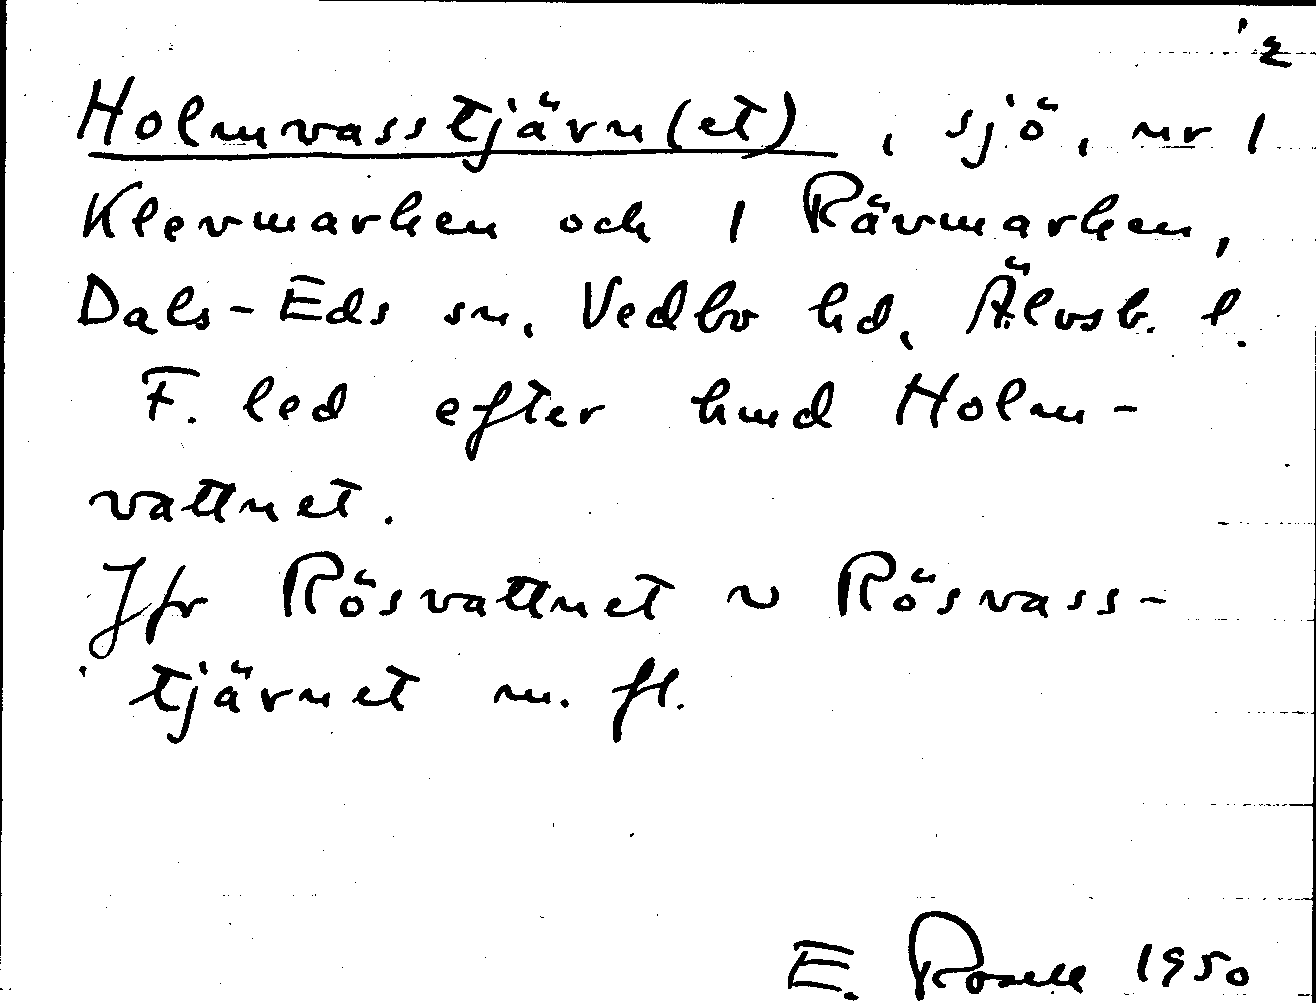 2
Holmvasstjärn(et), sjö, nr 1
Klevmarken och 1 Rävmarken,
Dals-Eds sn, Vedbo hd, Älvsb. l.
F. led efter hmd Holm-
vattnet.
Jfr Rösvattnet ~ Rösvass-
tjärnet m. fl.
E. Rosell 1950